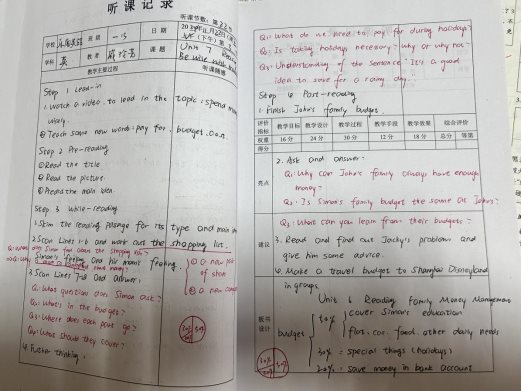 听课记录
听课节数: 第
学校 班级 日期
学科 英 教者 课题 Unit 7
教学主要过程 听课随感
Be wise with
Step 1 Lead-in
1. Watch a video to lead in the topic: spend money
wisely.
② Teach some new words: pay for, budget,
Step 2 Pre-reading
① Read the title
② Read the picture.
③ Predict the main idea.
Step 3 While-reading
1. Skim the reading passage for its type and main
2. Scan Lines 1-6 and work out the shopping list.
Simon's feeling and his mum's feeling.
① a new pair
of shoes
② a new
3. Scan Lines 7-8 and answer:
Q1: What question does Simon ask?
Q2: What's in the budget?
Q3: Where does each part go?
Q4: What should they cover?
4. Further thinking.
Q1: What do we need to pay for during holidays?
Q2: Is taking holidays necessary? Why or why not?
Q3: Understanding of the sentence "It's a good
idea to save for a rainy day."
Step 4 Post-reading
1. Finish John's family budget
评价指标 教学目标 教学设计 教学过程 教学手段 教学效果 综合评价
权重 16分 24分 30分 12分 18分 总分 等第
得分
亮点
2. Ask and answer:
Q1: Why can John's family always have enough
money?
Q2: Is Simon's family budget the same as John's?
Q3: What can you learn from their budgets?
建议
3. Read and find out Jacky's problems and
give him some advice.
4. Make a travel budget to Shanghai Disneyland
in groups.
板书设计
Unit 6 Reading Family Money Management
budget
50% cover Simon's education
flat, car, food, other daily needs
30% = special things (holidays)
20% = save money in bank account